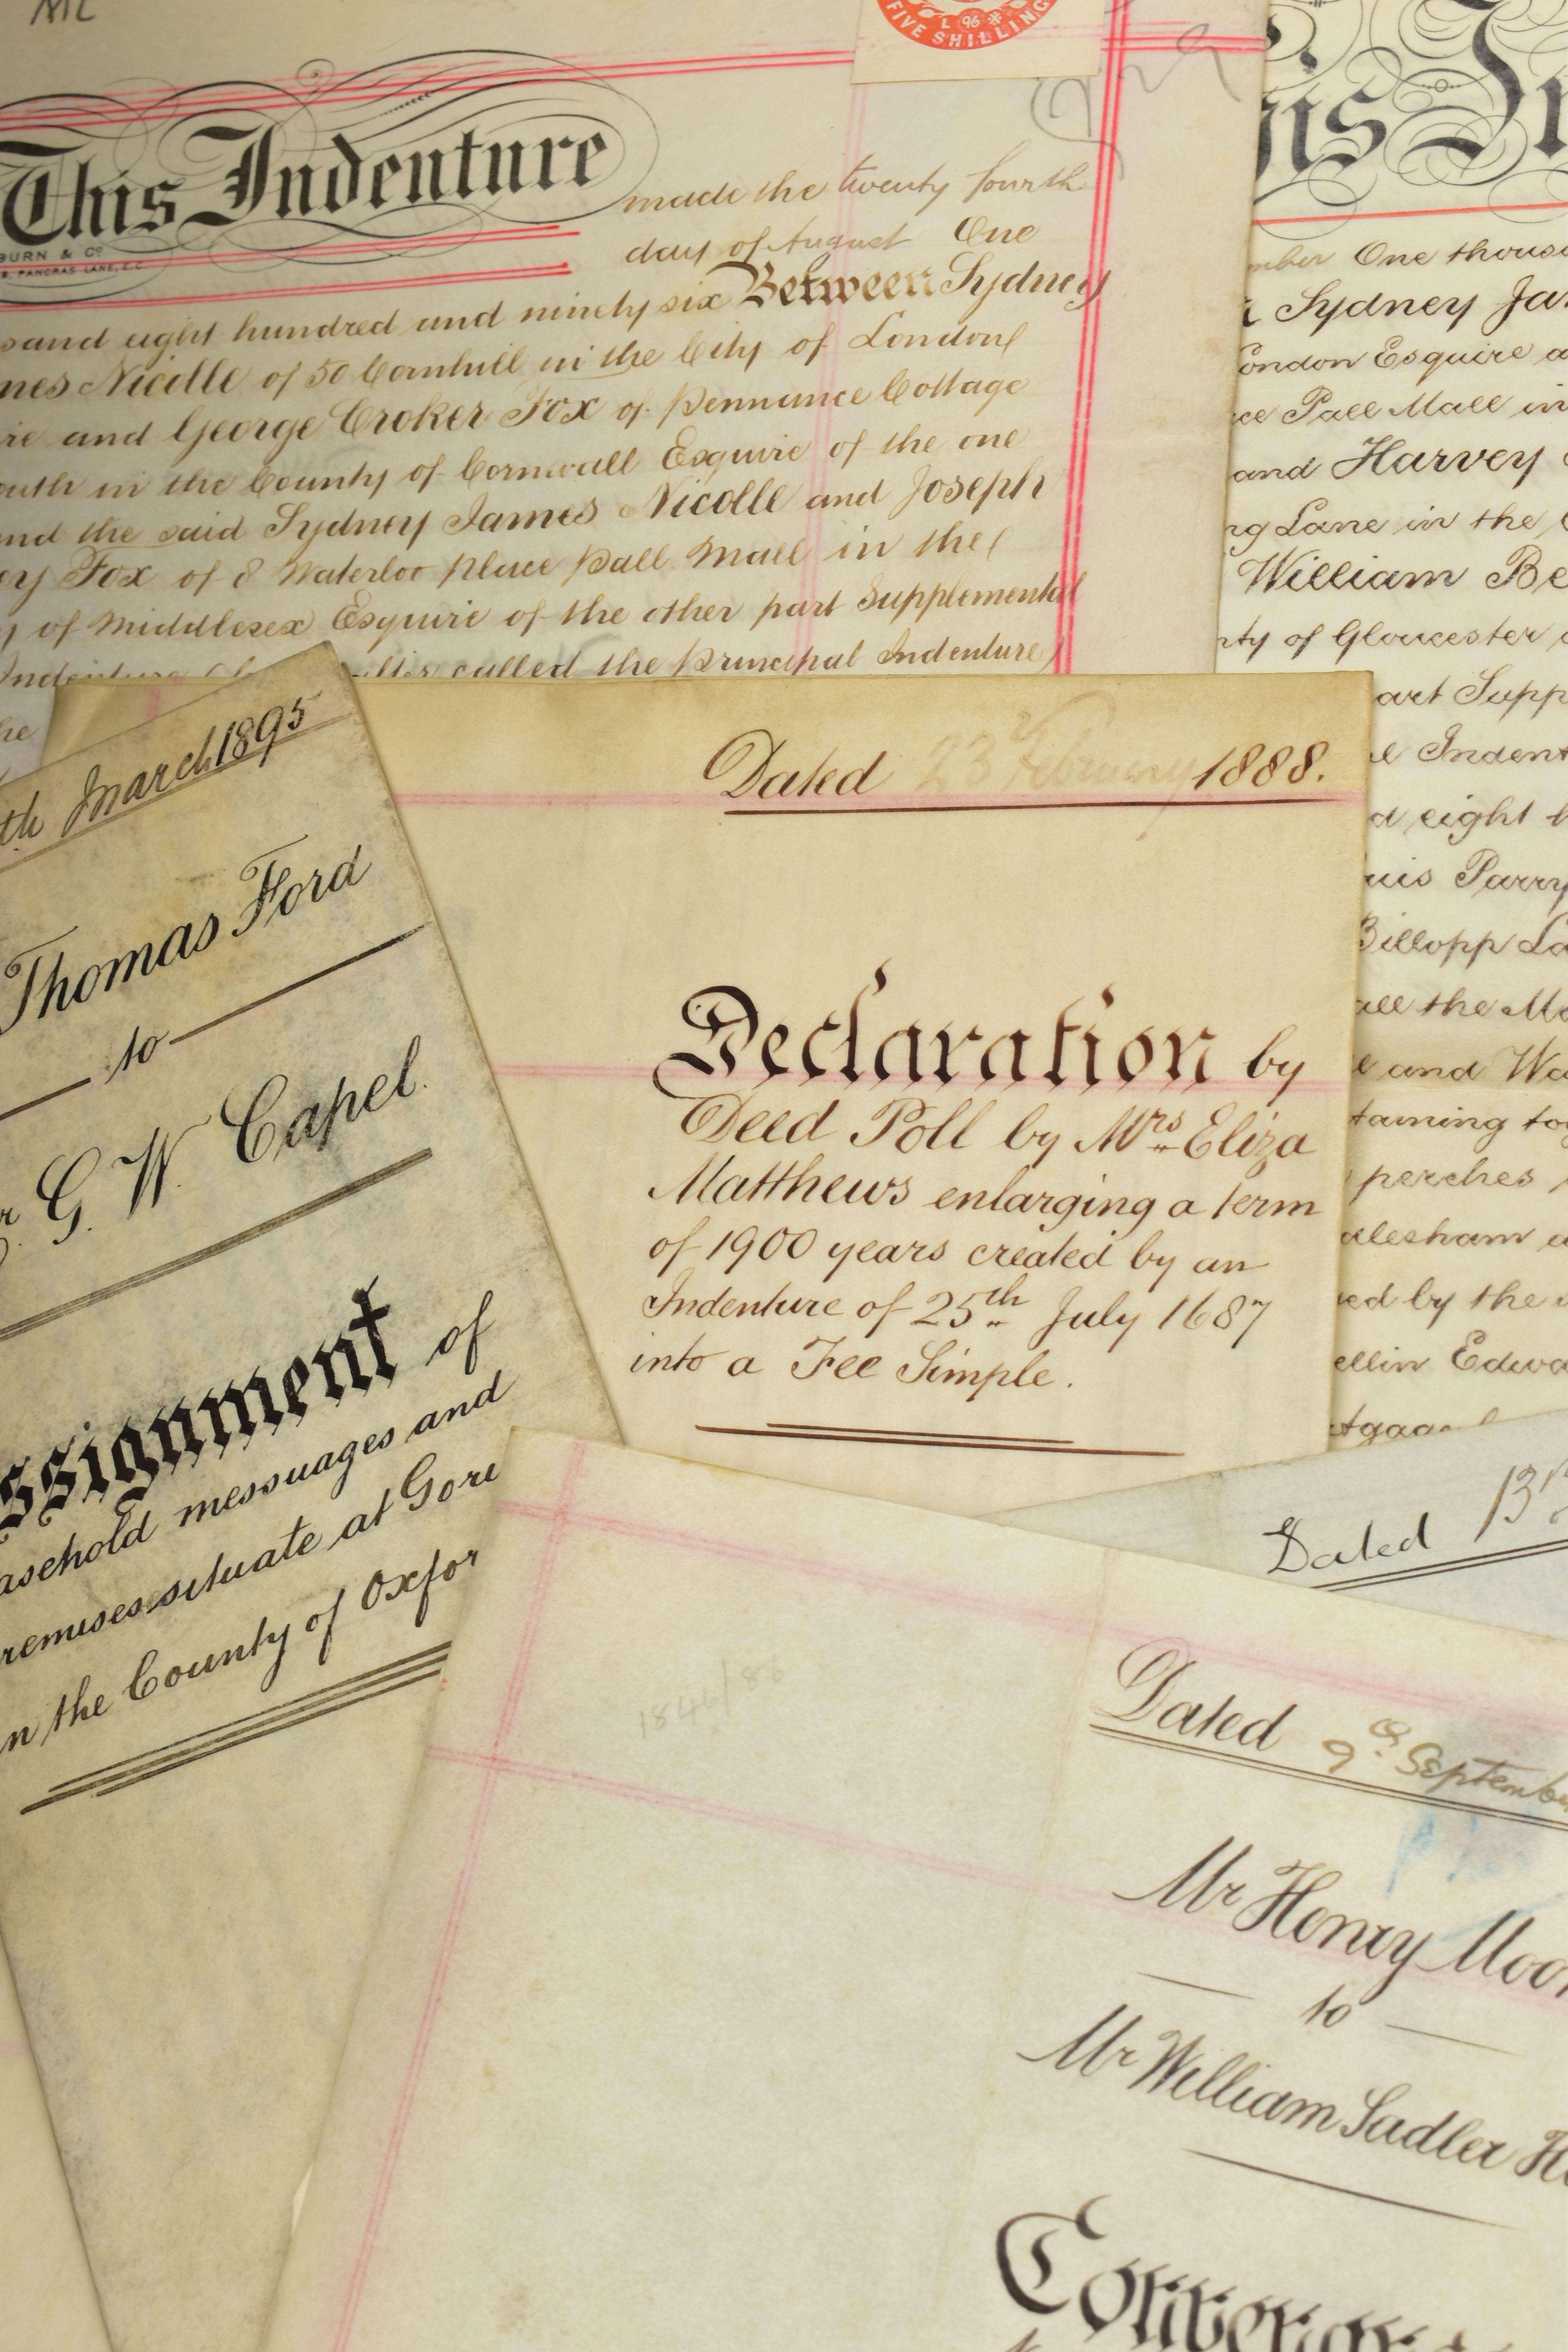 FIVE SHILLINGS
L 96
This Indenture made the twenty fourth
day of August One
sand eight hundred and ninety six Between Sydney
mes Nicolle of 50 Cornhill in the City of London
re and George Croker Fox of Pennance Cottage
outh in the County of Cornwall Esquire of the one
nd the said Sydney James Nicolle and Joseph
ey Fox of 8 Waterloo Place Pall Mall in the
y of Middlesex Esquire of the other part Supplemental
called the Principal Indenture
BURN & Co
PANCRAS LANE, E.C.
his In
mber One thous
Sydney Ja
ondon Esquire a
ce Pall Mall in
and Harvey
ng Lane in the
William Be
nty of Gloucester
art Supp
e Indent
d eight h
uis Parry
Billopp La
all the Me
e and Wa
taining tog
perches
alesham a
ed by the
ellin Edwa
th March 1895
Thomas Ford
to
r G. W. Capel.
ssignment of
asehold messuages and
remises situate at Gori
n the County of Oxfor
Dated 23rd February 1888.
Declaration by
Deed Poll by Mrs Eliza
Matthews enlarging a term
of 1900 years created by an
Indenture of 25th July 1687
into a Fee Simple.
Dated 13
1846/86
Dated 9th September
Mr Henry Moor
to
Mr William Sadler H
Conveyan